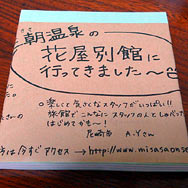 朝温泉の
花屋別館に
行ってきました〜
楽しくて気さくなスタッフがいっぱい!!
旅館でこんなにスタッフの人としゃべったの
はじめてかも〜!
尼崎市 A.Yさん
は今すぐアクセス→http://www.misasaonse